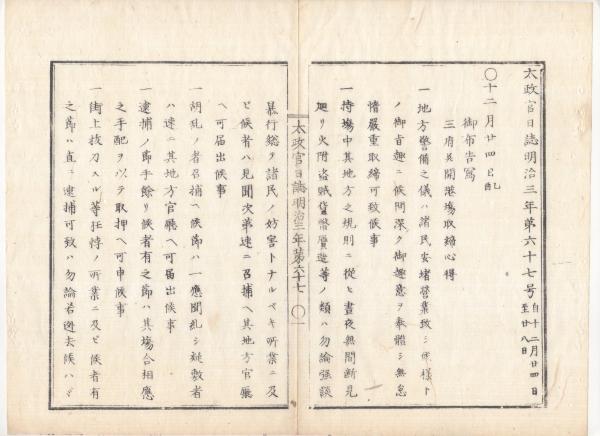 太政官日誌明治三年第六十七号 自十二月廿四日 至廿八日
○十二月廿四日 乙酉
御布告寫
三府並開港場取締心得
一地方警備之儀ハ諸民安堵營業致シ候様ト
ノ御旨趣ニ候間深ク御趣意ヲ奉體シ無怠
惰嚴重取締可致候事
一持場中其地方之規則ニ從ヒ晝夜無間斷見
廻リ火附盗賊貨幣贋造等ノ類ハ勿論強談
太政官日誌明治三年第六十七 ○一
暴行総テ諸民ノ妨害トナルベキ所業ニ及
ヒ候者ハ見聞次第速ニ召捕ヘ其地方官廳
ヘ可届出候事
一胡乱ノ者召捕ヘ候節ハ一應聞糺シ疑敷者
ハ速ニ其地方官廳ヘ可届出候事
一逮捕ノ節手餘リ候者有之節ハ其場合相應
之手配ヲ以テ取押ヘ可申候事
一街上抜刀スル等狂悖ノ所業ニ及ヒ候者有
之節ハ直ニ逮捕可致ハ勿論若逃去候ハヾ